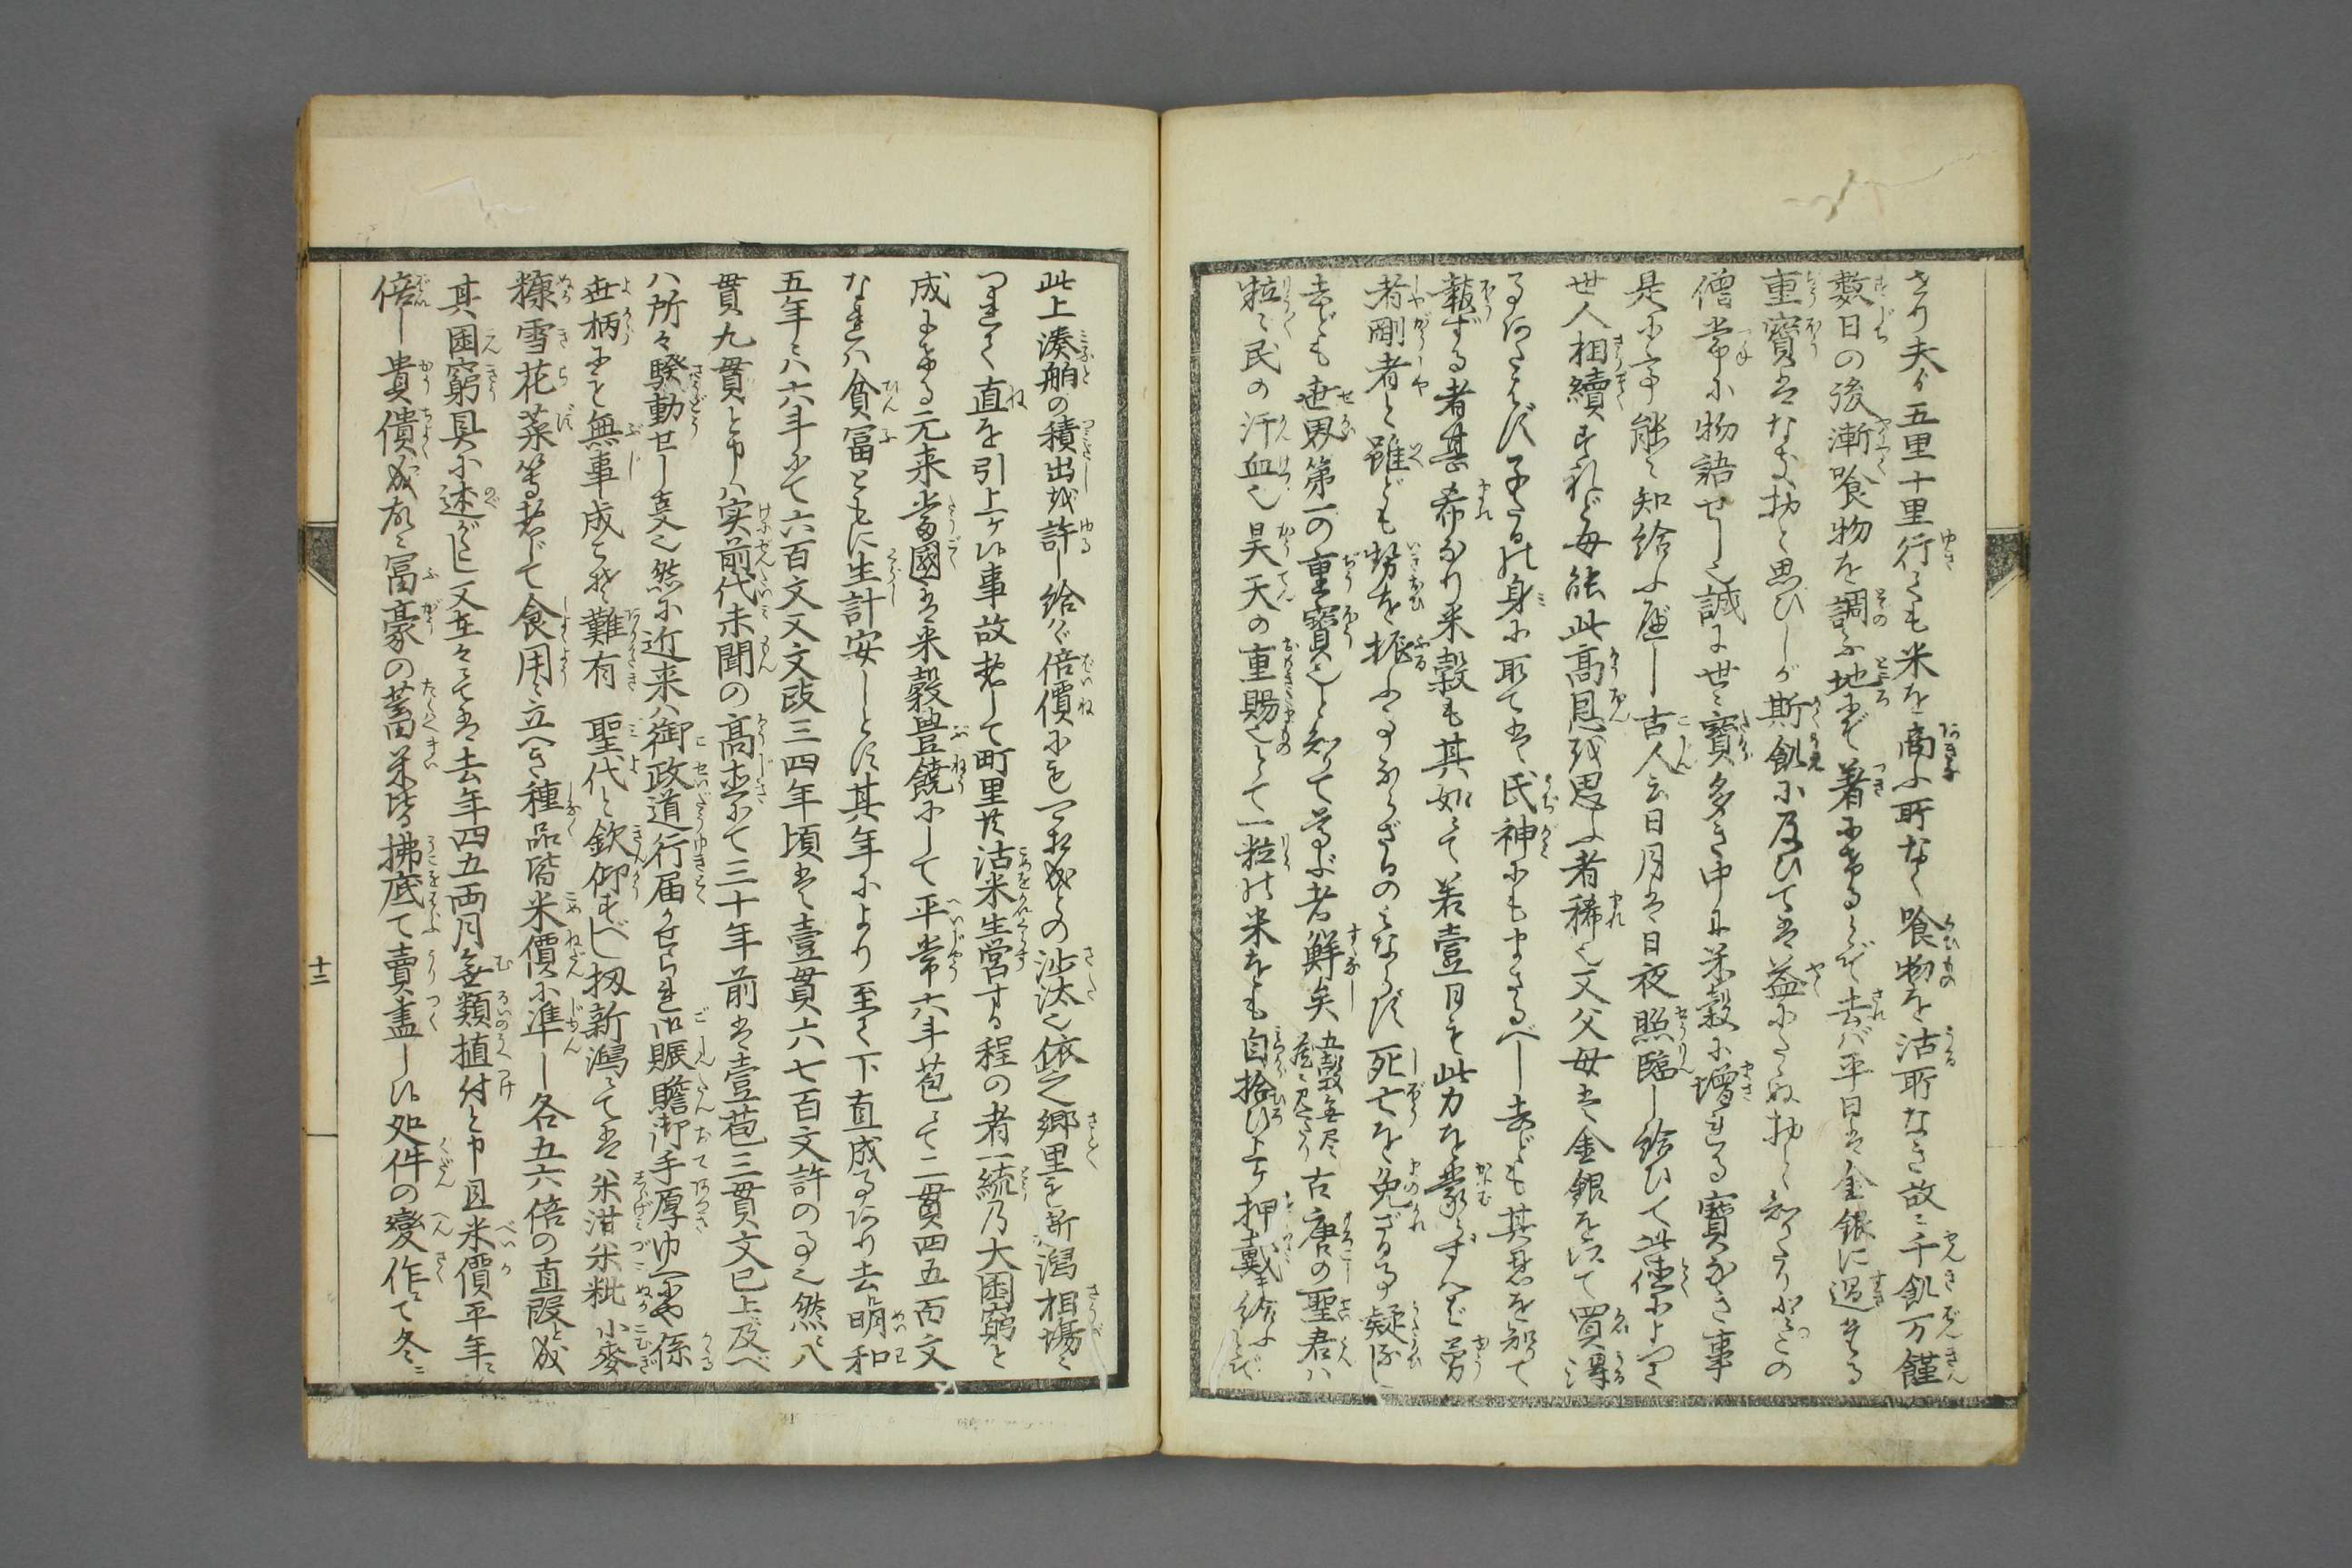 さり夫より五里十里行ても米を商ふ所なく喰物を沽所なき故に千飢万饉
数日の後漸喰物を調ふ地に着にけるとぞ去バ平日は金銀に過たる
重寶はなき物と思ひしが斯飢に及びては益にたゝぬ物と知りたりと
僧常に物語せし也誠に世に寶多き中に米穀に増れる寶なき事
是にて能々知給ふべし古人云日月は日夜照臨し給ひて此徳によつて
世人相續すれど毎能此高恩を思ふ者稀也又父母は金銀を以て買得
子たるの身に取ては氏神にもまさるべし去ども其恩を知て
報ずる者甚希なり米穀も其如くにて若壹日も此力を蒙らずんば勇
者剛者と雖ども勢を振ふ事ならざるのみならず死亡を免ざる事疑なし
去ども世界第一の重寶也と知りて尊ぶ者鮮矣 古唐の聖君ハ
粒々民の汗血也昊天の重賜也とて一粒の米をも自拾ひ上ケ押戴給ふとぞ
此上湊舶の積出を許し給ハヾ倍價にも可相成との沙汰也依之郷里も新潟相場に
つれて直を引上ケ候事故惣して町里共沽米生営する程の者一統乃大困窮と
成にける元来当國は米穀豊饒にして平常六斗苞にて二貫四五百文
なれハ貧冨ともに生計安しとす其年により至て下直成事あり去ル明和
五年にハ六斗にて六百文又文政三四年頃は壹貫六七百文許の事也然ハ八
貫九貫と申ハ実前代未聞の高直にて三十年前は壹苞三貫文已上に及べ
ハ所々騒動せし事也然に近来ハ御政道行届かせられ御賑贍御手厚ゆへにや係
世柄にも無事成こそ難有 聖代と欽仰すべし扨新潟にては米泔米粃小麥
糠雪花菜等惣じて食用に立べき種品皆米價に準し各五六倍の直段と成
其困窮具に述がたし又在々にては去年四五両月無類植付と申且米價平年ニ
倍し貴價成故に冨豪の蓄米皆拂底て賣盡し候処件の變作にて冬ニ
十二